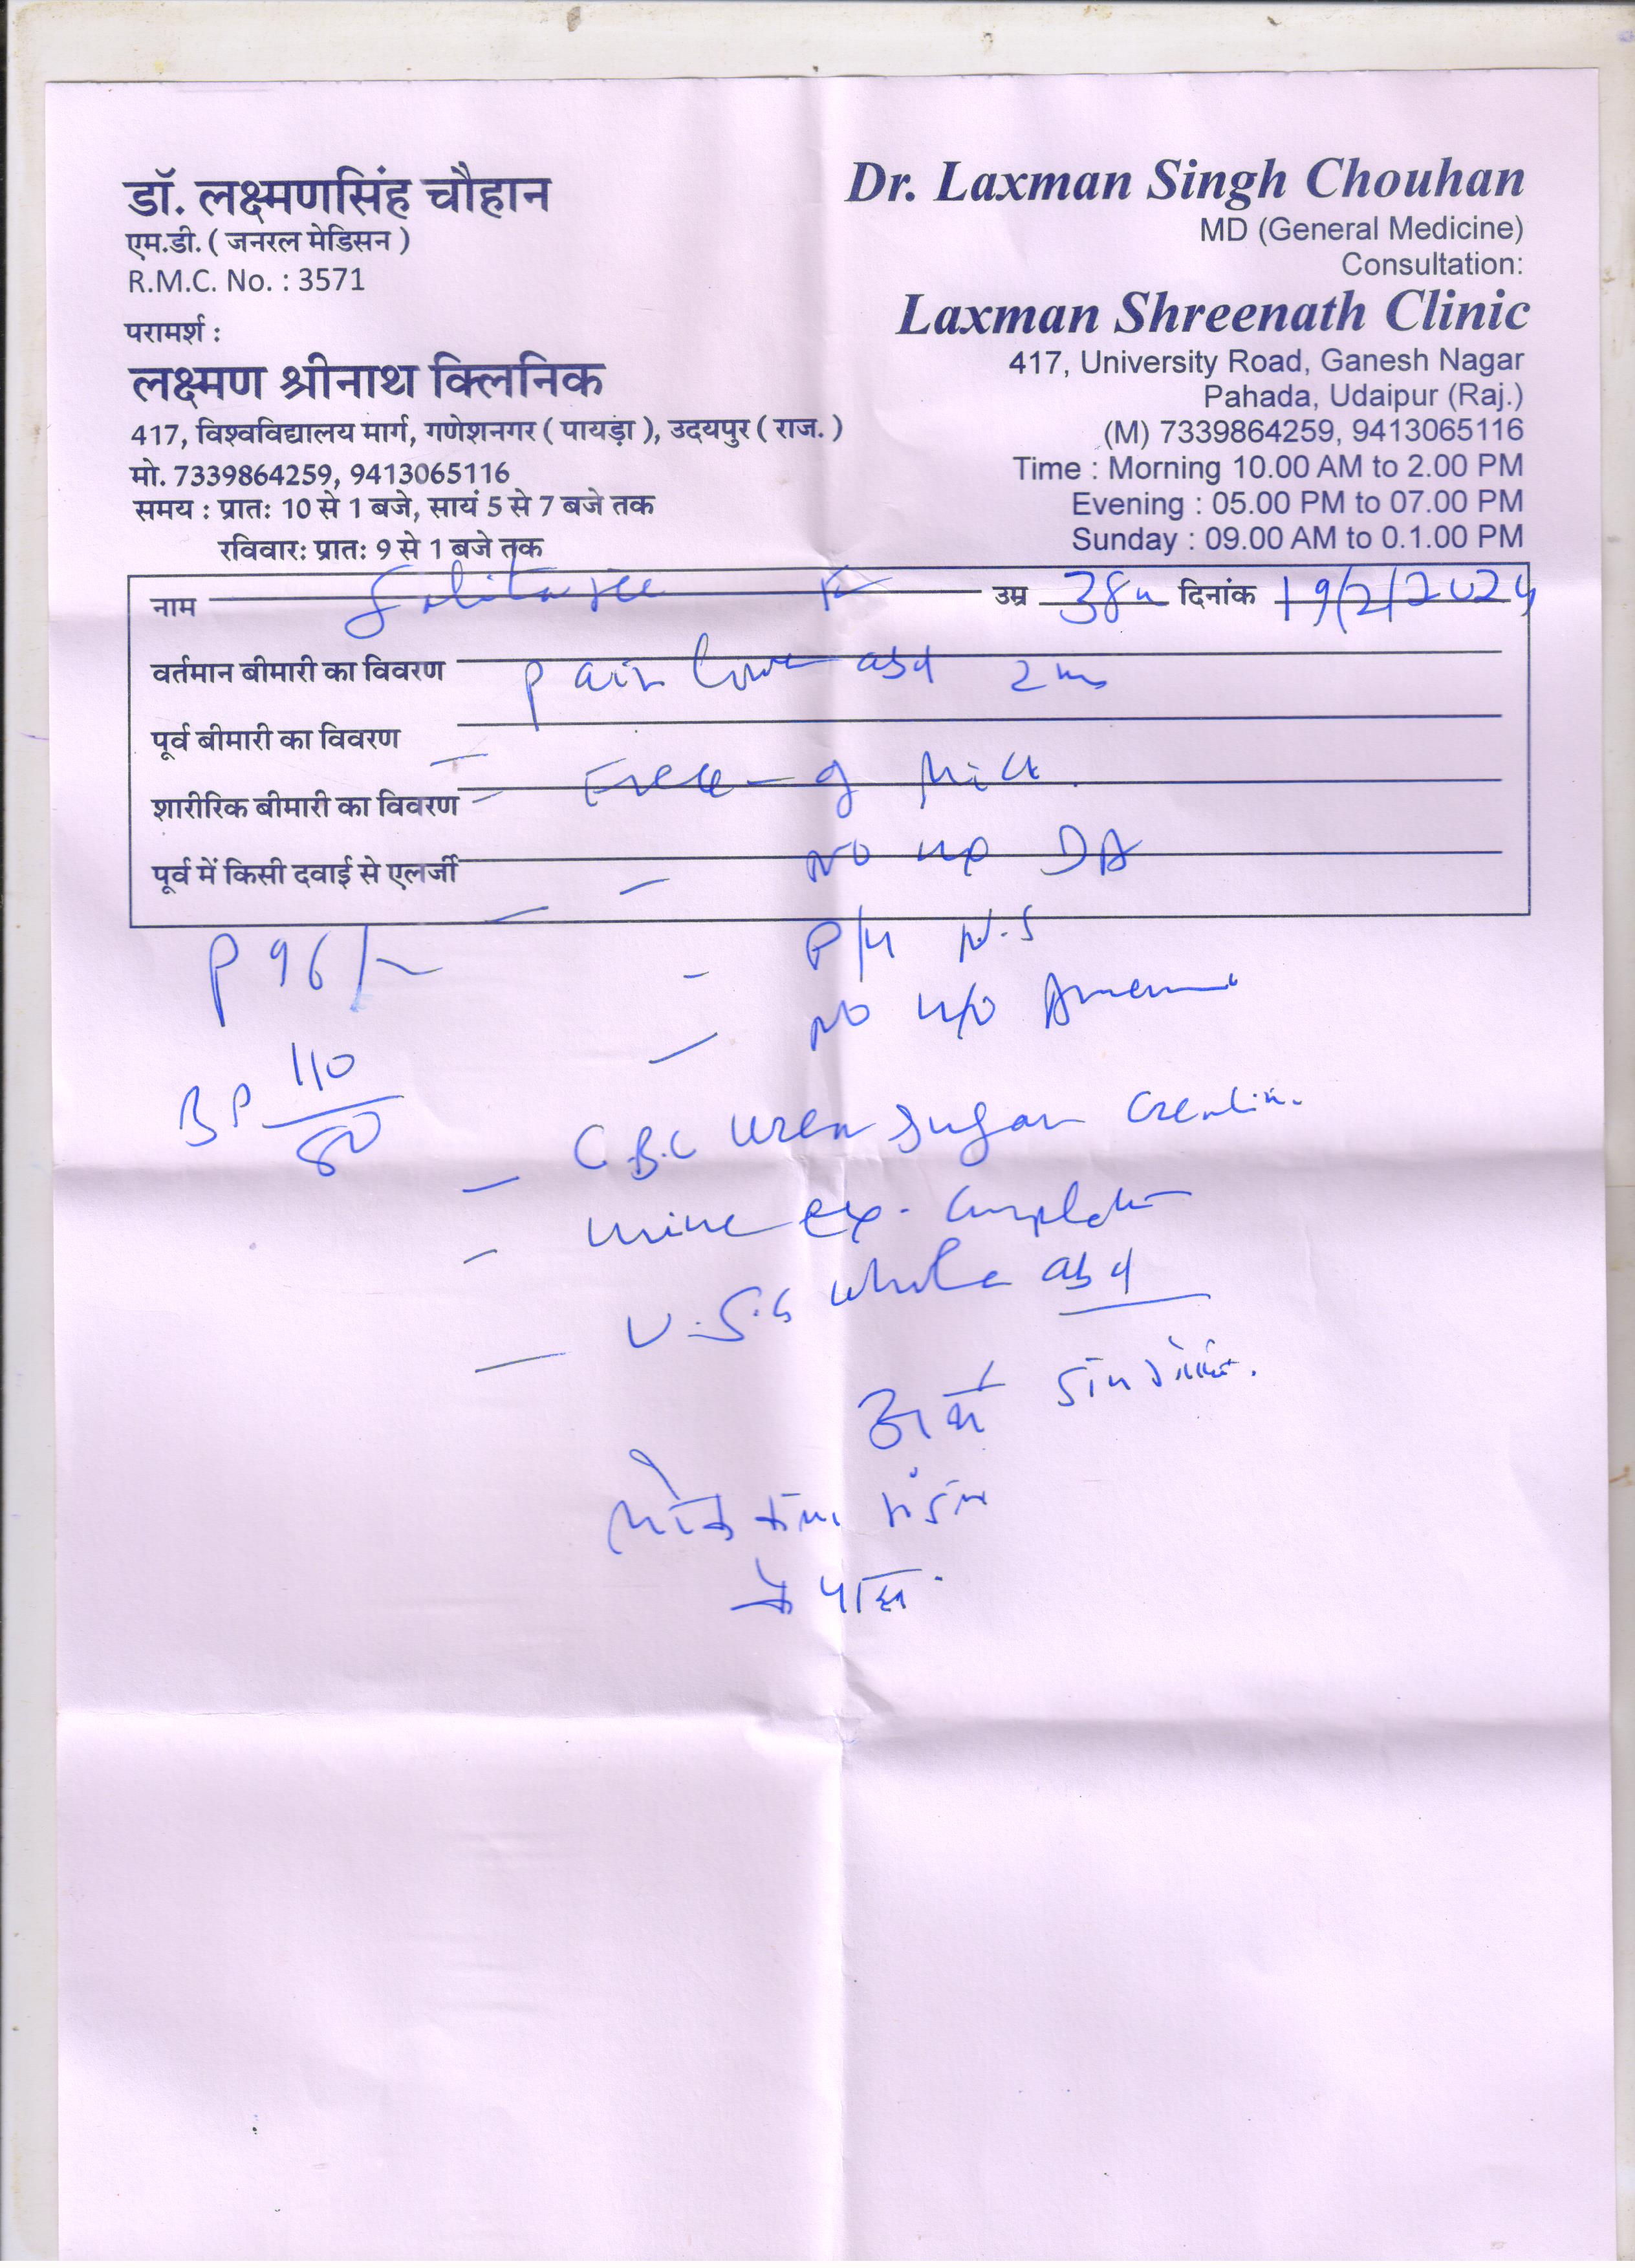 डॉ. लक्ष्मणसिंह चौहान
एम.डी. ( जनरल मेडिसन )
R.M.C. No. : 3571
परामर्श :
लक्ष्मण श्रीनाथ क्लिनिक
417, विश्वविद्यालय मार्ग, गणेशनगर ( पायड़ा ), उदयपुर ( राज. )
मो. 7339864259, 9413065116
समय : प्रातः 10 से 1 बजे, सायं 5 से 7 बजे तक
रविवारः प्रातः 9 से 1 बजे तक
Dr. Laxman Singh Chouhan
MD (General Medicine)
Consultation:
Laxman Shreenath Clinic
417, University Road, Ganesh Nagar
Pahada, Udaipur (Raj.)
(M) 7339864259, 9413065116
Time : Morning 10.00 AM to 2.00 PM
Evening : 05.00 PM to 07.00 PM
Sunday : 09.00 AM to 0.1.00 PM
नाम उम्र 38 दिनांक 19/2/2024
वर्तमान बीमारी का विवरण pain lower abd 2
पूर्व बीमारी का विवरण
शारीरिक बीमारी का विवरण
पूर्व में किसी दवाई से एलर्जी No DA
P 96/-
- P/H N.S
- No H/O
BP 110/80
- C.B.C Urea Sugar Creatin.
- Urine ex. Complete
- U.S.G whole abd
के पास